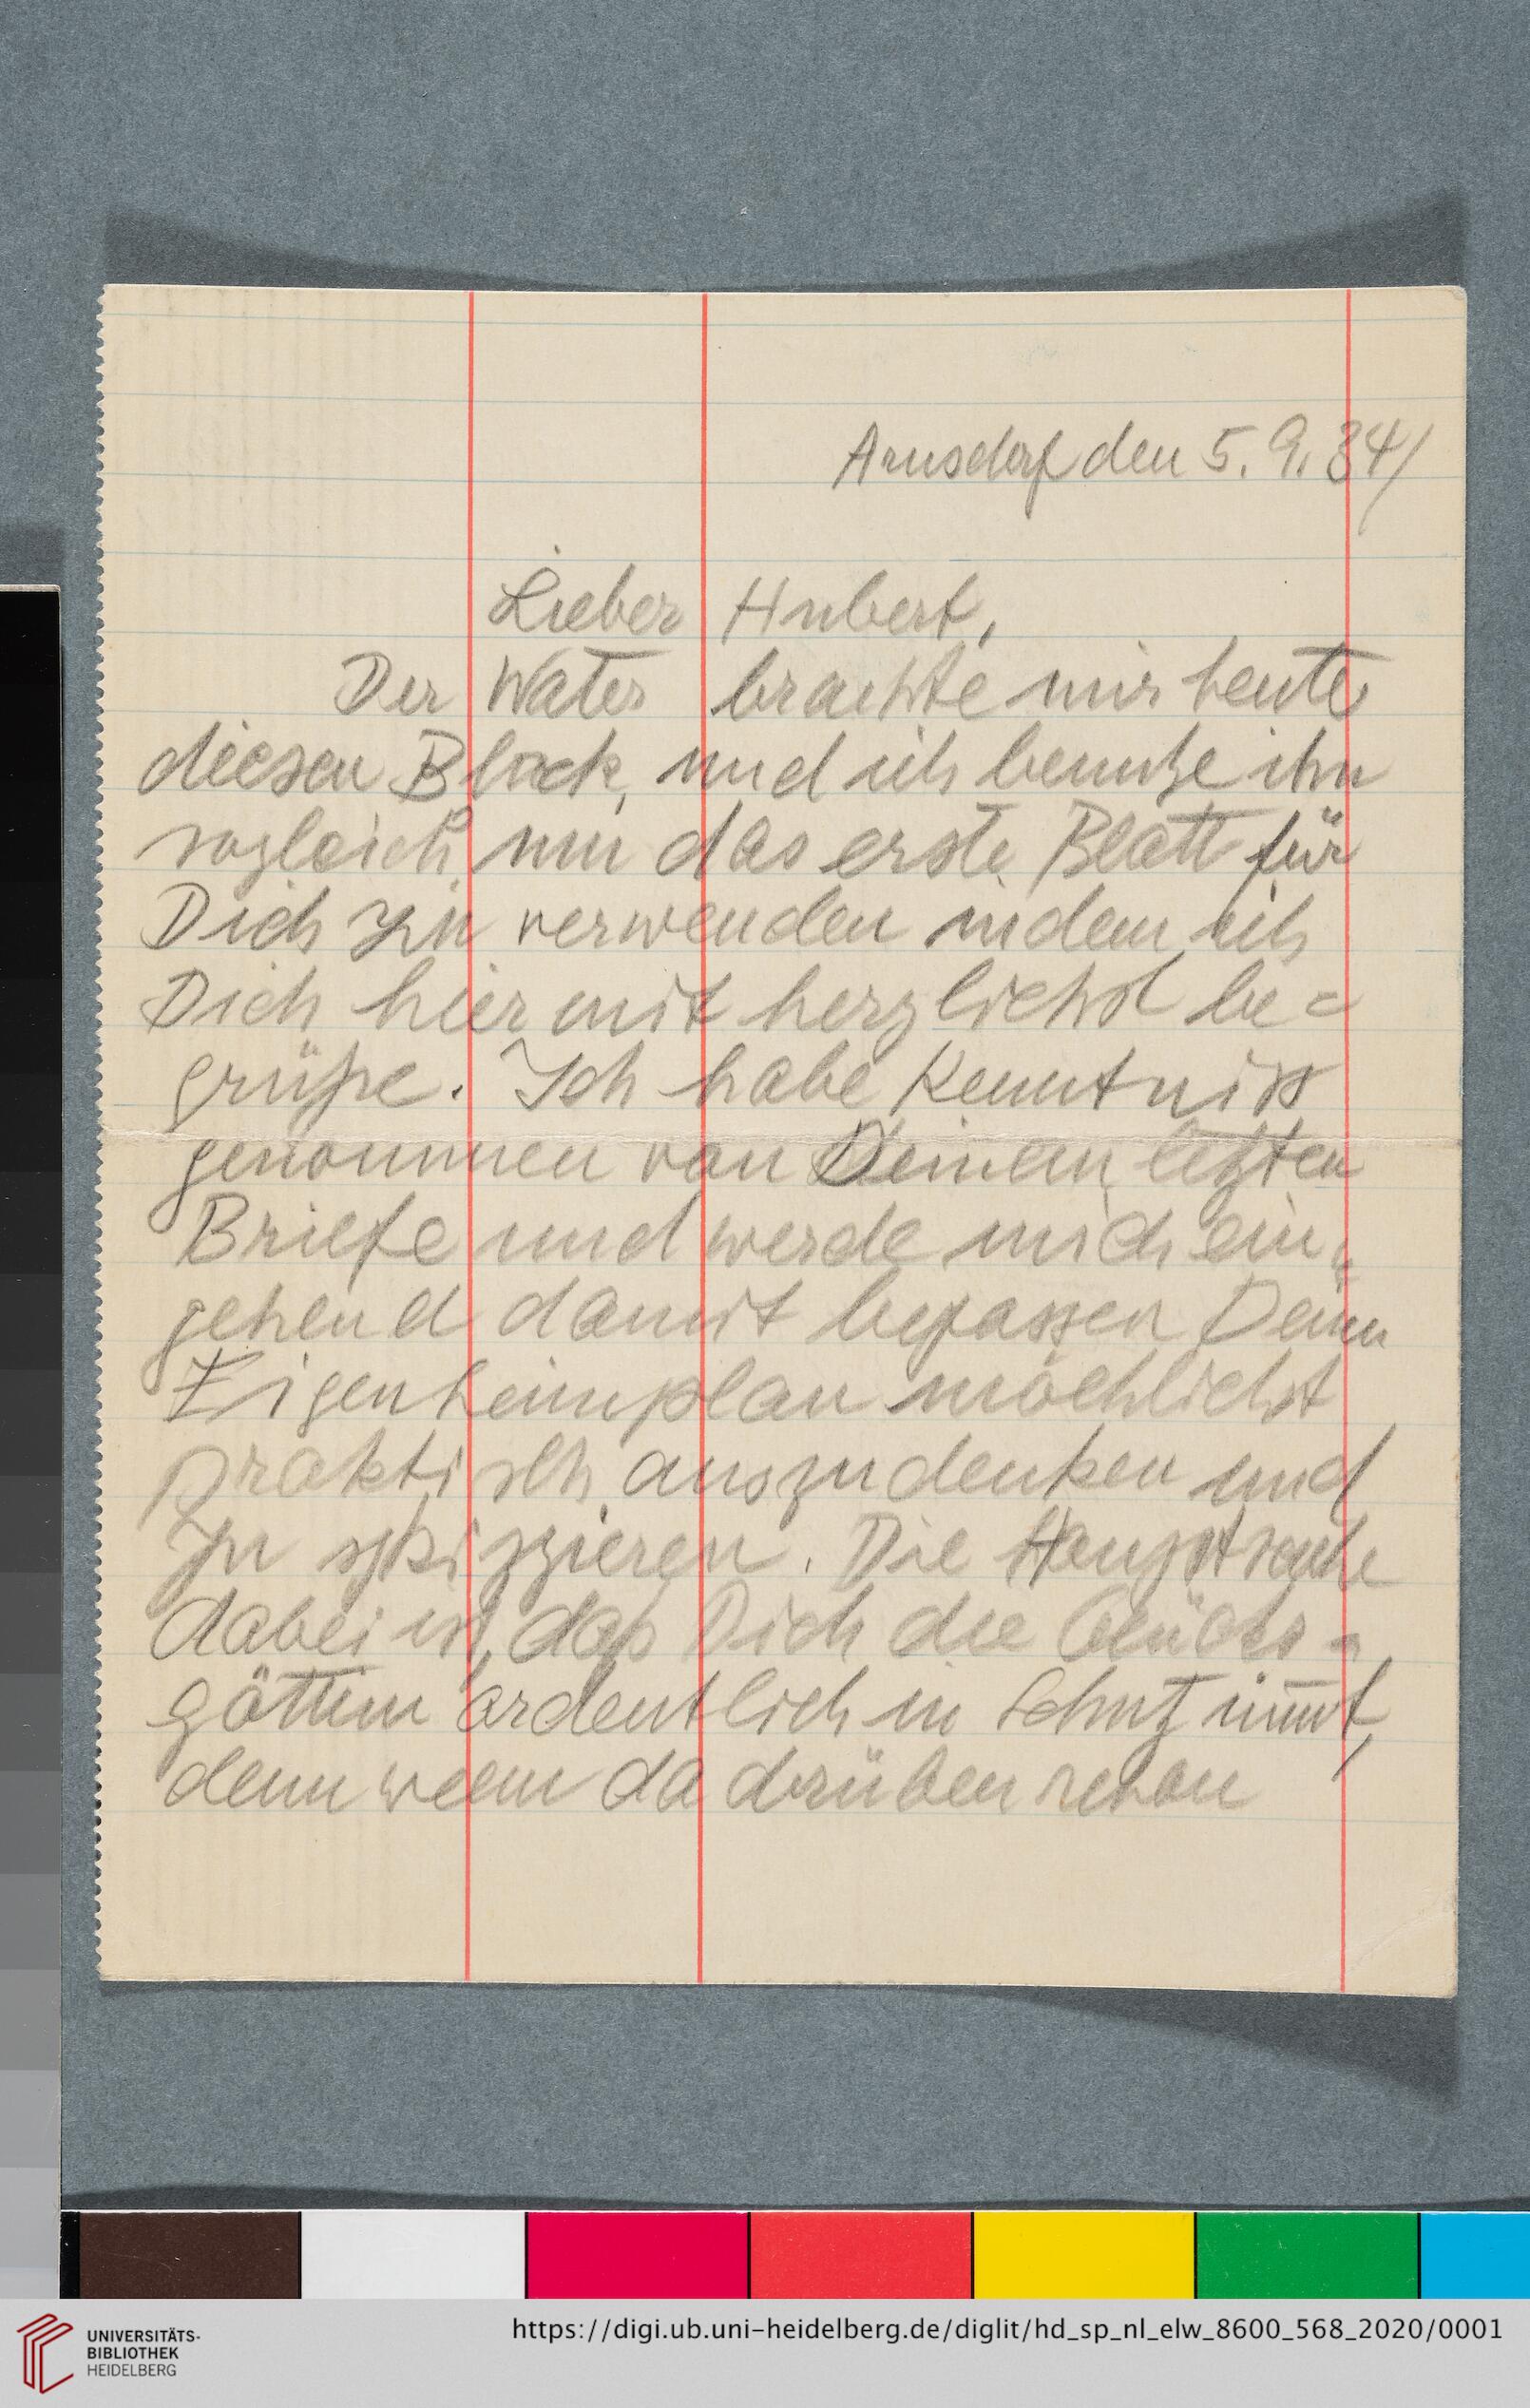 Arnsdorf den 5. 9. 34/
Lieber Hubert,
Der Vater brachte mir heute
diesen Block, und ich benutze ihn
sogleich, um das erste Blatt für
Dich zu verwenden indem ich
Dich hiermit herzlichst be=
grüße. Ich habe Kenntniss
genommen von Deinem letzten
Briefe und werde mich ein=
gehend damit befassen Deinen
Eigenheimplan möchlichst
praktisch auszudenken und
zu skizzieren. Die Hauptsache
dabei ist, daß Dich die Glücks=
göttin ordentlich in Schutz nimmt,
denn wenn da drüben schon
UNIVERSITÄTS-
BIBLIOTHEK
HEIDELBERG
https://digi.ub.uni-heidelberg.de/diglit/hd_sp_nl_elw_8600_568_2020/0001